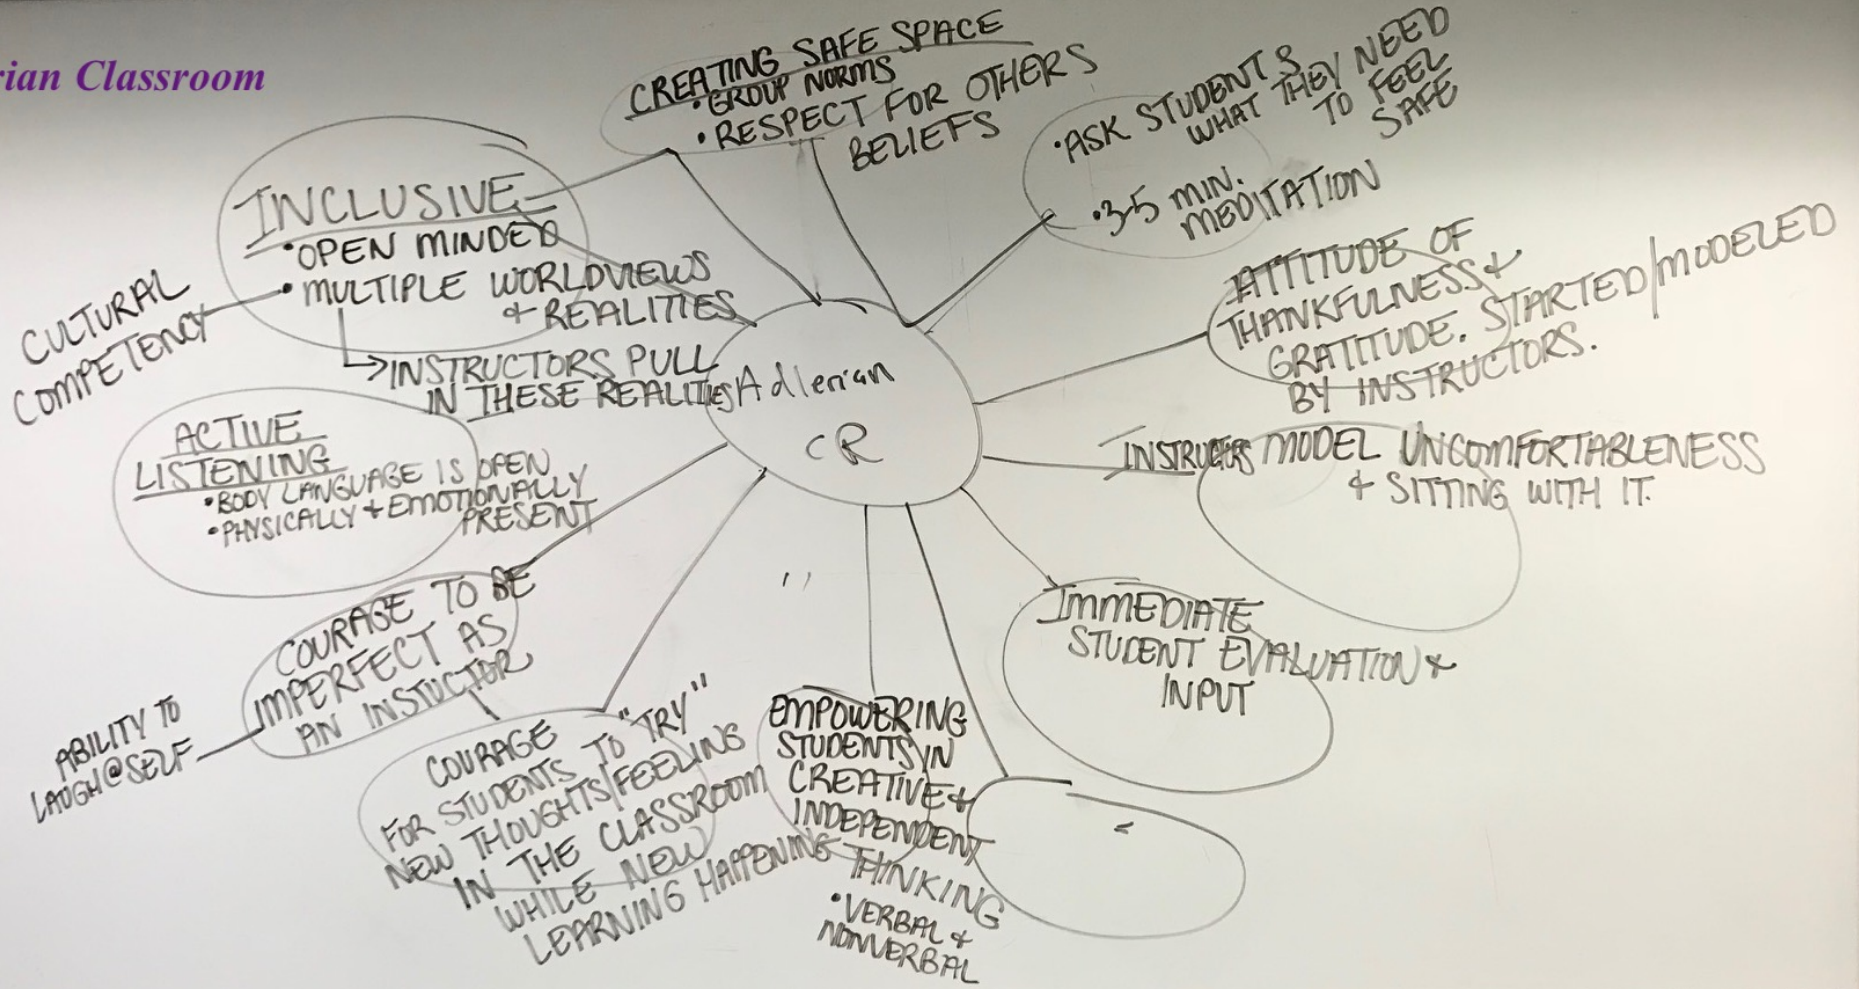 rian Classroom
CREATING SAFE SPACE
• GROUP NORMS
• RESPECT FOR OTHERS
BELIEFS
• ASK STUDENTS
WHAT THEY NEED
TO FEEL
SAFE
• 3-5 MIN.
MEDITATION
INCLUSIVE
• OPEN MINDED
• MULTIPLE WORLDVIEWS
+ REALITIES
→ INSTRUCTORS PULL
IN THESE REALITIES
CULTURAL
COMPETENCY
ATTITUDE OF
THANKFULNESS &
GRATITUDE. STARTED/MODELED
BY INSTRUCTORS.
Adlerian
CR
ACTIVE
LISTENING
• BODY LANGUAGE IS OPEN
• PHYSICALLY + EMOTIONALLY
PRESENT
INSTRUCTORS MODEL UNCOMFORTABLENESS
+ SITTING WITH IT.
COURAGE TO BE
IMPERFECT AS
AN INSTUCTOR
ABILITY TO
LAUGH @ SELF
IMMEDIATE
STUDENT EVALUATION &
INPUT
COURAGE
FOR STUDENTS TO "TRY"
NEW THOUGHTS/FEELING
IN THE CLASSROOM
WHILE NEW
LEARNING HAPPENING
EMPOWERING
STUDENTS IN
CREATIVE &
INDEPENDENT
THINKING
• VERBAL +
NONVERBAL